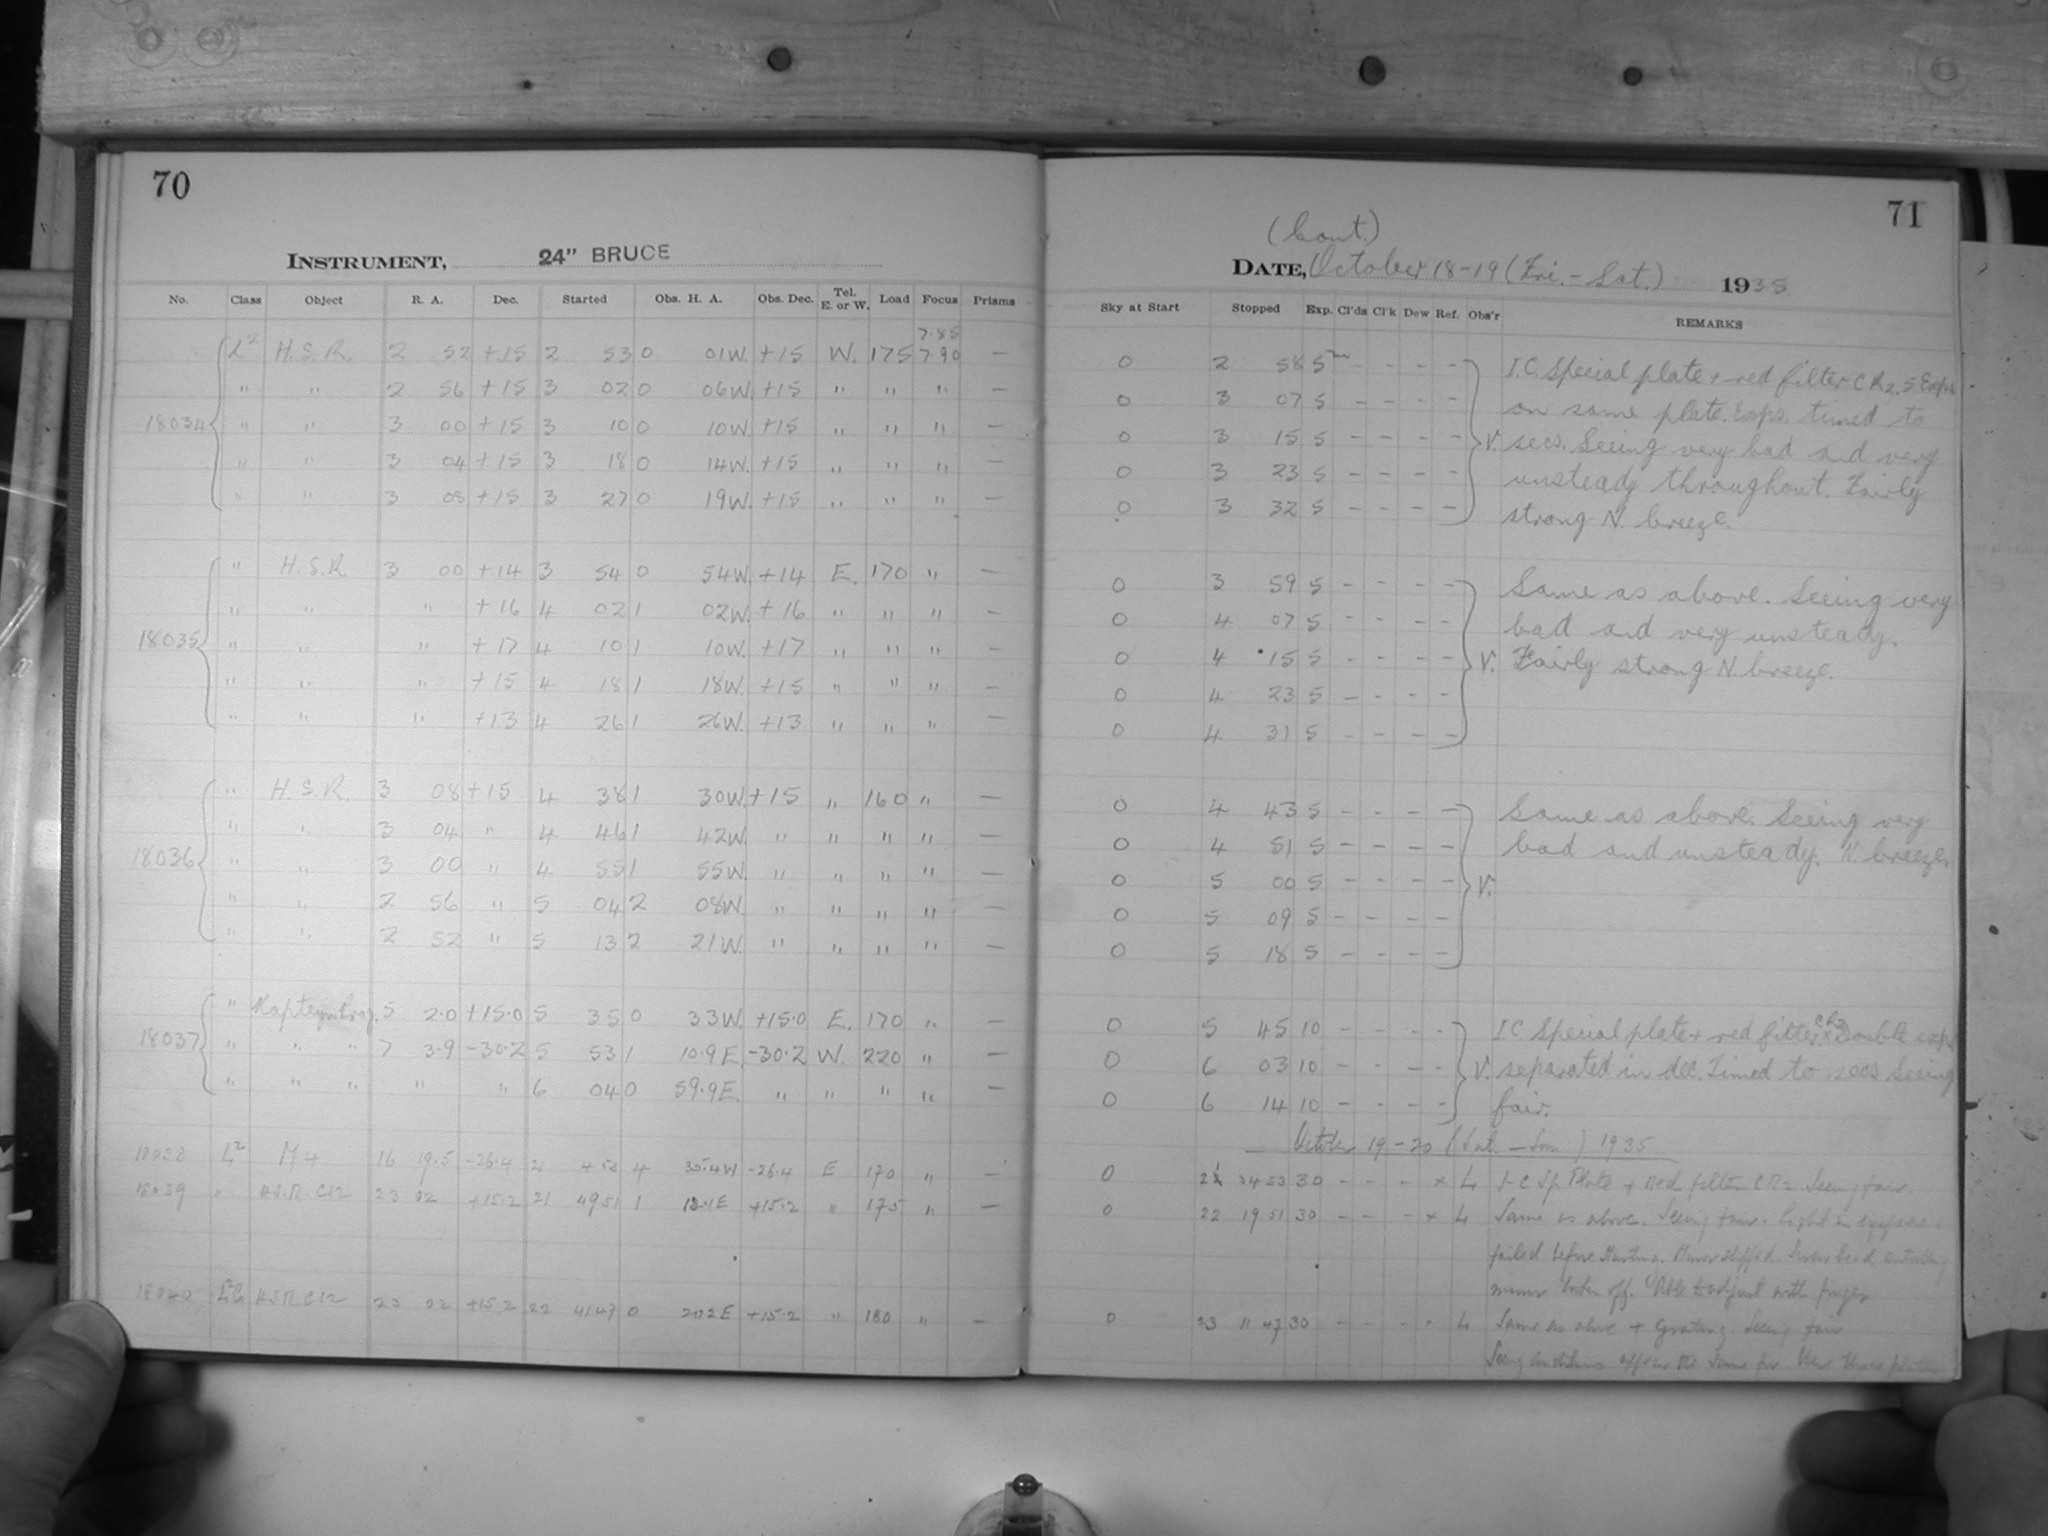 70
INSTRUMENT, 24" BRUCE
No. Class Object R. A. Dec. Started Obs. H. A. Obs. Dec. Tel. E. or W. Load Focus Prisms
7.85
L² H.S.R. 2 52 +15 2 53 0 01W. +15 W. 175 7.90 —
" " 2 56 +15 3 02 0 06W. +15 " " " —
18034 " " 3 00 +15 3 10 0 10W. +15 " " " —
" " 3 04 +15 3 18 0 14W. +15 " " " —
" " 3 08 +15 3 27 0 19W. +15 " " " —
" H.S.R 3 00 +14 3 54 0 54W. +14 E. 170 " —
" " " +16 4 02 1 02W. +16 " " " —
18035 " " " +17 4 10 1 10W. +17 " " " —
" " " +15 4 18 1 18W. +15 " " " —
" " " +13 4 26 1 26W. +13 " " " —
" H.S.R. 3 08 +15 4 38 1 30W. +15 " 160 " —
" " 3 04 " 4 46 1 42W. " " " " —
18036 " " 3 00 " 4 55 1 55W. " " " " —
" " 2 56 " 5 04 2 08W. " " " " —
" " 2 52 " 5 13 2 21W. " " " " —
" Kapteyn 5 2.0 +15.0 5 35 0 33W. +15.0 E. 170 " —
18037 " " " 7 3.9 -30.2 5 53 1 10.9E. -30.2 W. 220 " —
" " " " " 6 04 0 59.9E. " " " " —
18038 L² M4 16 19.5 -26.4 21 4 53 4 35.4W -26.4 E 170 " —
18039 " H.S.R. C12 23 02 +15.2 21 49 51 1 12.1E +15.2 " 175 " —
18040 H.S.R C12 23 02 +15.2 22 41 47 0 20.2E +15.2 " 180 " —
71
(Cont.)
DATE, October 18-19 (Fri. - Sat.) 1935
Sky at Start Stopped Exp. Cl'ds Cl'k Dew Ref. Obs'r REMARKS
0 2 58 5ᵐ - - - - I.C. Special plate + red filter CR2. 5 Exps.
0 3 07 5 - - - - on same plate. Exps. timed to
0 3 15 5 - - - - V. secs. Seeing very bad and very
0 3 23 5 - - - - unsteady throughout. Fairly
0 3 32 5 - - - - strong N. breeze.
0 3 59 5 - - - - Same as above. Seeing very
0 4 07 5 - - - - bad and very unsteady.
0 4 15 5 - - - - V. Fairly strong N. breeze.
0 4 23 5 - - - -
0 4 31 5 - - - -
0 4 43 5 - - - - Same as above. Seeing very
0 4 51 5 - - - - bad and unsteady. N. breeze.
0 5 00 5 - - - - V.
0 5 09 5 - - - -
0 5 18 5 - - - -
0 5 45 10 - - - - I.C. Special plate + red filter CR2 Double exps.
0 6 03 10 - - - - V. separated in dec. Timed to secs. Seeing
0 6 14 10 - - - - fair.
October 19-20 (Sat. - Sun.) 1935
0 21 34 53 30 - - - x L I-C Sp. Plate + Red filter CR2 Seeing fair.
0 22 19 51 30 - - - x L Same as above. Seeing fair. Light in eyepiece
failed before starting.
off. Able to adjust with finger
0 23 11 47 30 - - - L Same as above + Grating. Seeing fair
Seeing conditions appear the same for these three plates